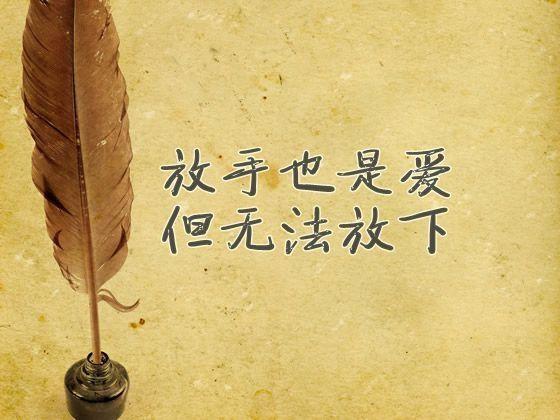 放手也是爱
但无法放下